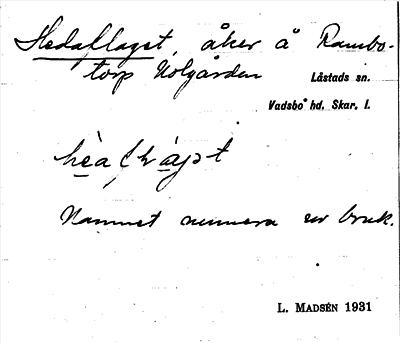 Hedaflaget, åker å Rambo-
torp Nolgården
Låstads sn.
Vadsbo hd, Skar. l.
Namnet numera ur bruk.
L. MADSÉN 1931